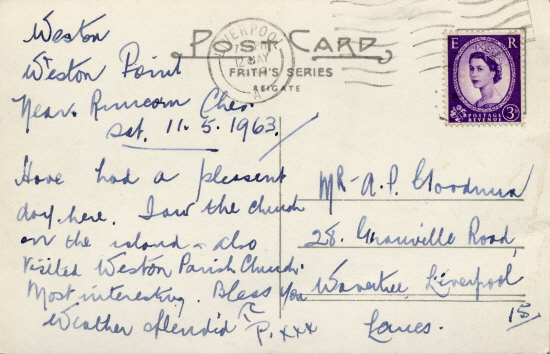 Weston
Weston Point
Near Runcorn Ches.
Sat. 11.5.1963.
Have had a pleasent
day here. Saw the church
on the island - also
visited Weston Parish Church.
Most interesting. Bless you
Weather splendid P. xxx
POST CARD
FRITH'S SERIES
REIGATE
LIVERPOOL
12 MAY
A
E R
POSTAGE
REVENUE
3D
Mr. A. P. Goodman
28. Granville Road,
Wavertree, Liverpool
15
Lancs.